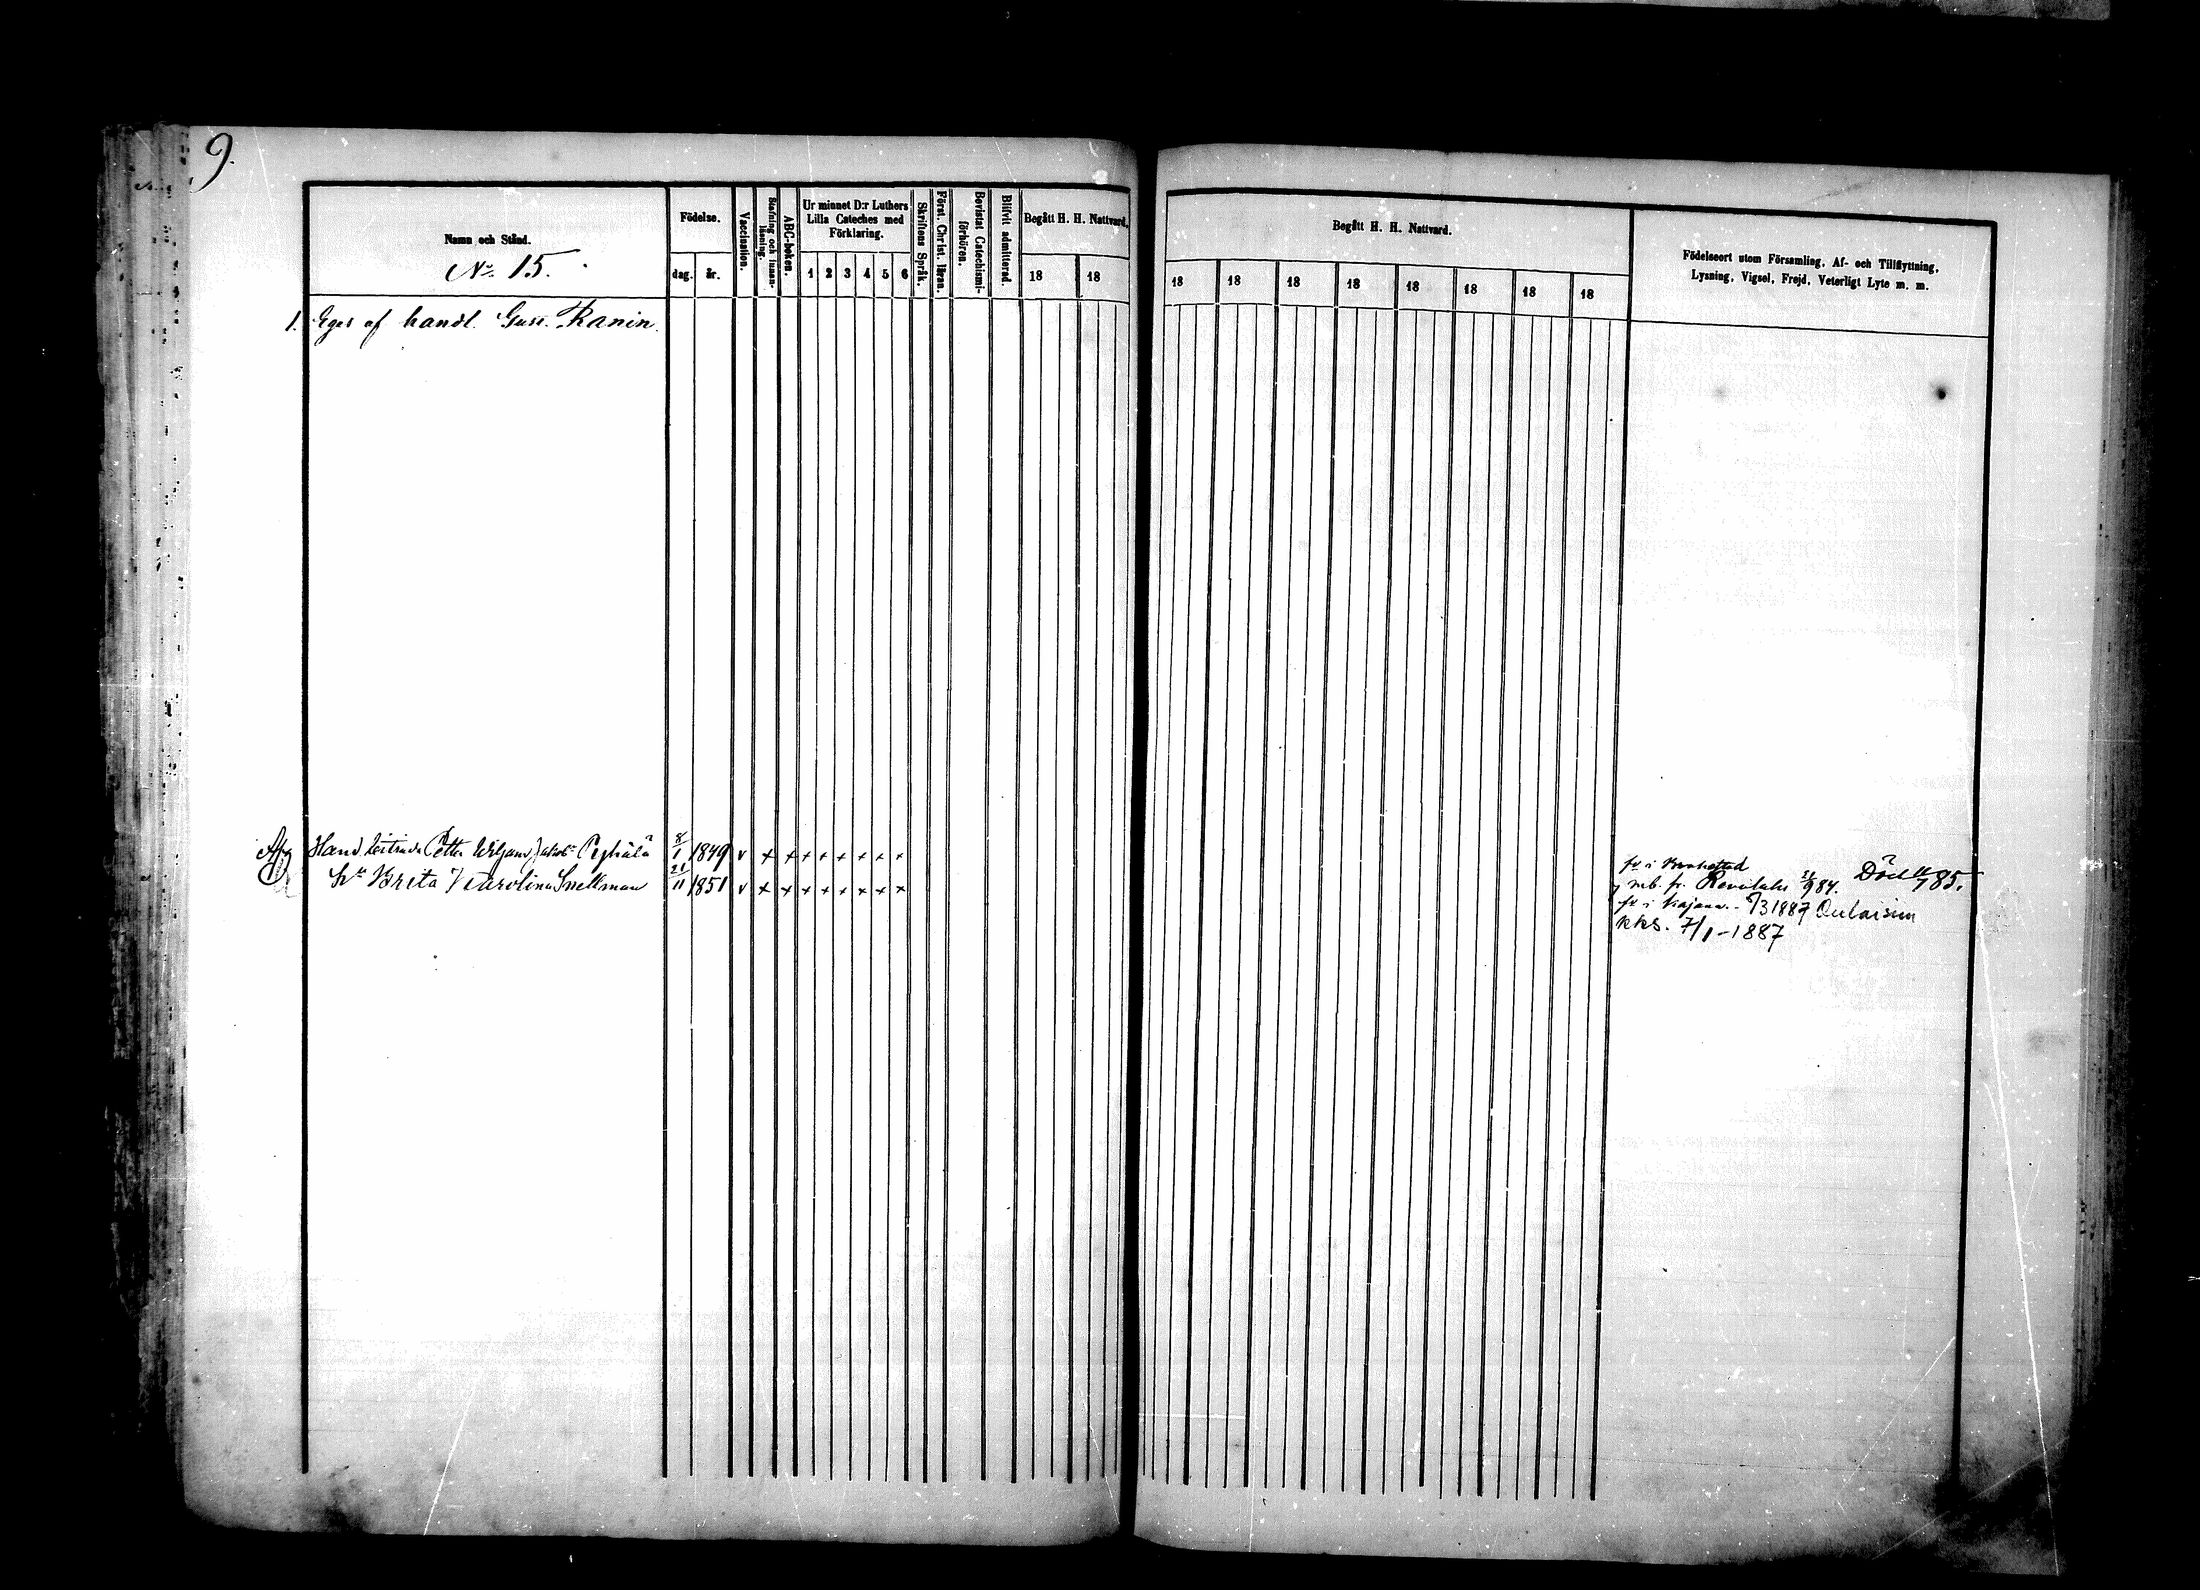 9.
Namn och Stånd.
No 15.
Födelse.
dag. år.
Vaccination.
Stafning och innan-läsning.
ABC-boken.
Ur minnet D:r Luthers
Lilla Cateches med
Förklaring.
1 2 3 4 5 6
Skriftens Språk.
Först. Christ. läran.
Bevistat Catechismi-förhören.
Blifvit admitterad.
Begått H. H. Nattvard.
18 18
Begått H. H. Nattvard.
18 18 18 18 18 18 18 18
Födelseort utom Församling, Af- och Tillflyttning,
Lysning, Vigsel, Frejd, Veterligt Lyte m. m.
1. Eges af handl. Gust. Ranin.
Hand Petter Wiljam 8/1 1849 v × × × × × × × ×
Brita Carolina Snellman 21/11 1851 v × × × × × × × ×
fr i Brahestad
mb. fr. 9 84. Död 85.
fr i Kajana 3 1887 Oulaisiin
kks. 7/1-1887